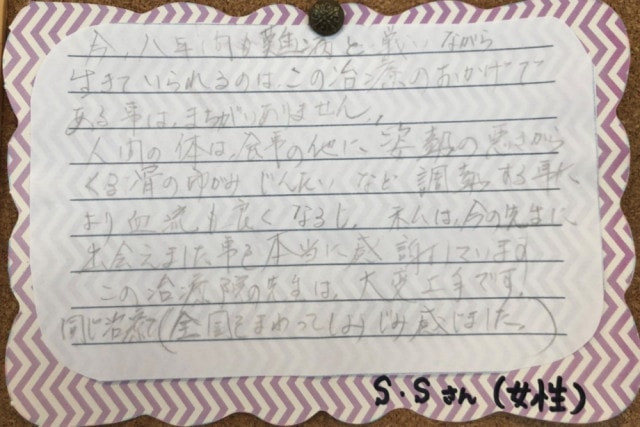 今、八年間も難病と戦いながら
生きていられるのは、この治療のおかげで
ある事は、まちがいありません。
人間の体は、食事の他に、姿勢の悪さから
くる骨のゆがみ じんたい など 調整する事に
より血流も良くなるし、私は、今の先生に
出会えました事を本当に感謝しています
この治療院の先生は、大変上手です。
同じ治療で(全国をまわって しみじみ感じました。)
S・Sさん(女性)